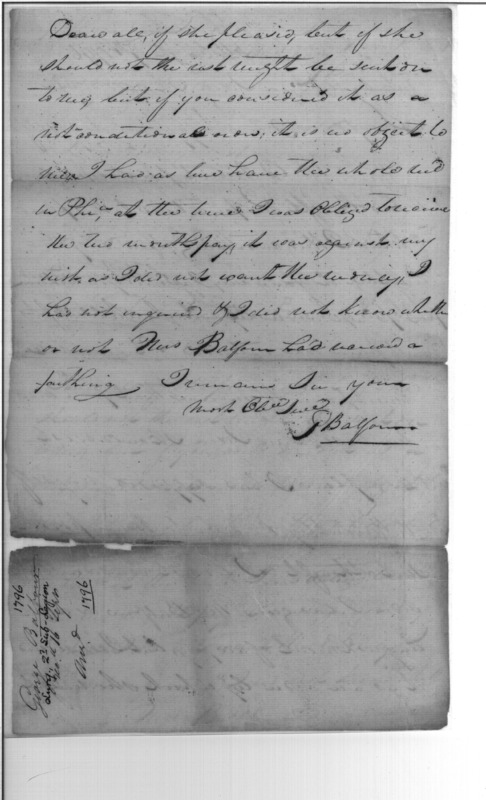 Draw all, if she pleased, but if she
should not the rest might be sent on
to me, but if you considered it as a
not conditional now, it is no object to
me I had as live have the whole
in Phia, at the time I was obliged to receive
the two months pay, it was against my
wish, as I did not want the money, I
had not inquired & I did not know whether
or not Mrs Balfour had received a
farthing I remain Sir your
Most Obd Servt
G Balfour
1796
George Balfour
2d Sub-Legion
1796